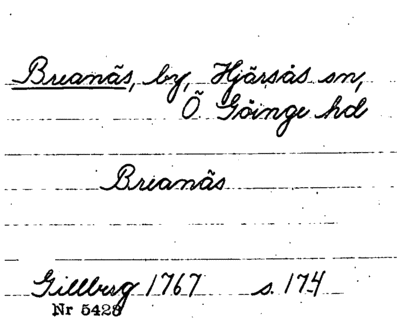 Breanäs, by, Hjärsås sn,
Ö Göinge hd
Breanäs
Gillberg 1767 s. 174
Nr 5428